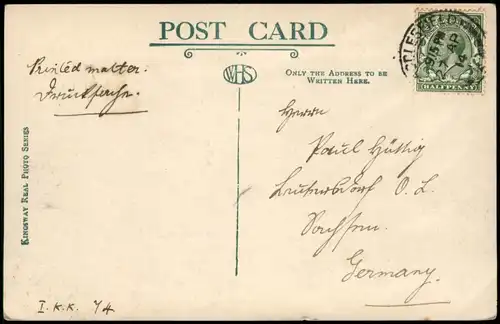 POST CARD
Printed matter.
Drucksache.
WHS
ONLY THE ADDRESS TO BE
WRITTEN HERE.
HALFPENNY
Herrn
Paul Hüttig
Leutersdorf O. L.
Sachsen.
Germany.
KINGSWAY REAL PHOTO SERIES
I.K.K. 7/4